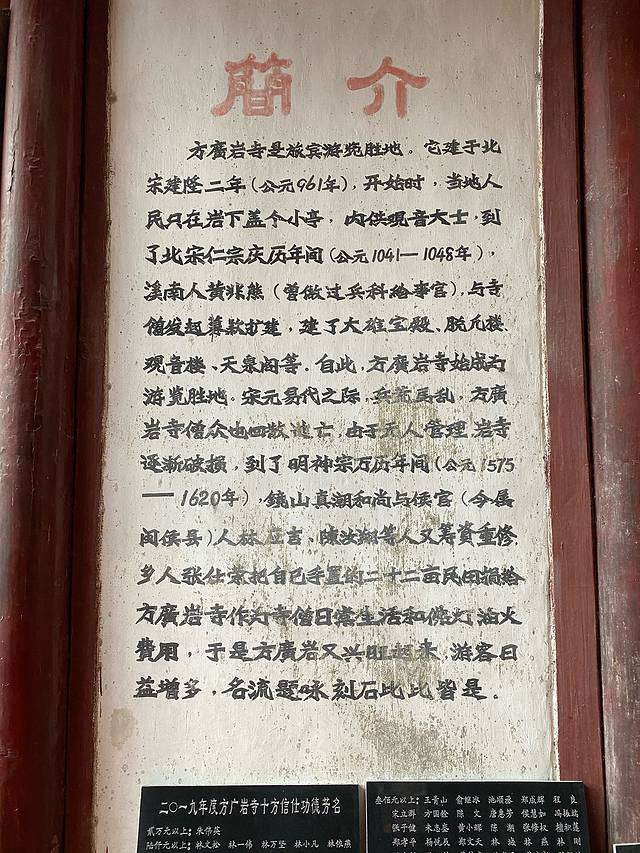 簡介
方廣岩寺是旅宾游览胜地。它建于北
宋建隆二年（公元961年），开始时，当地人
民只在岩下盖个小亭，内供观音大士，到
了北宋仁宗庆历年间（公元1041—1048年），
溪南人黄兆熊（曾做过兵科给事官），与寺
僧发起募款扩建，建了大雄宝殿、脱凡楼、
观音楼、天泉阁等。自此，方廣岩寺始成为
游览胜地。宋元易代之际，兵荒馬乱，方廣
岩寺僧众也四散逃亡，由于无人管理，岩寺
逐渐破损，到了明神宗万历年间（公元1575
—1620年），镜山真潮和尚与侯官（今属
闽侯县）人林立言、陳汝翔等人又筹資重修
乡人张仕宗把自己手置的二十二亩民田捐给
方廣岩寺作为寺僧日常生活和佛灯油火
費用，于是方廣岩又兴旺起来，游客日
益增多，名流题咏刻石比比皆是。
二〇一九年度方广岩寺十方信仕功德芳名
贰万元以上：朱华英
陆仟元以上：林文松 林一伟 林万坚 林小凡 林依燕
叁佰元以上：王青山 俞继冰 池顺丞 郑成辉 程良
宋立群 方国俭 陈文 唐惠芳 侯慧如
张子健 朱志荃 黄小辉 陈潮 张修权
郑孝平 杨悦辰 郑文天 林斌 林燕 林刚